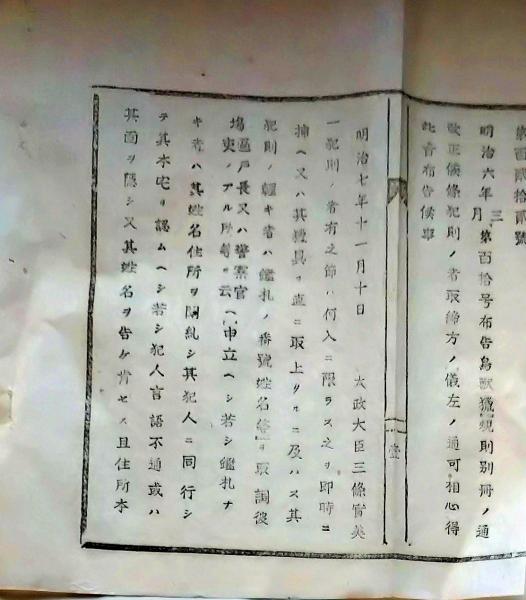 第百貳拾貳號
明治六年三月第百拾号布告鳥獸獵規則別冊ノ通
改正候條犯則ノ者取締方ノ儀左ノ通可相心得
此旨布告候事
明治七年十一月十日 太政大臣三條實美
一犯則ノ者有之節ハ何人ニ限ラス之ヲ即時ニ
捕ヘ又ハ其獵具ヲ直ニ取上クルニ及ハス其
犯則ノ輕キ者ハ鑑札ノ番號姓名等ヲ取調彼
場區戸長又ハ警察官
吏ノアル所等ヲ云ヘ申立ヘシ若シ鑑札ナ
キ者ハ其姓名住所ヲ聞糺シ其犯人ニ同行シ
テ其本宅ヲ認ムヘシ若シ犯人言語不通或ハ
其面ヲ隱シ又其姓名ヲ告ケ肯セス且住所本
壹